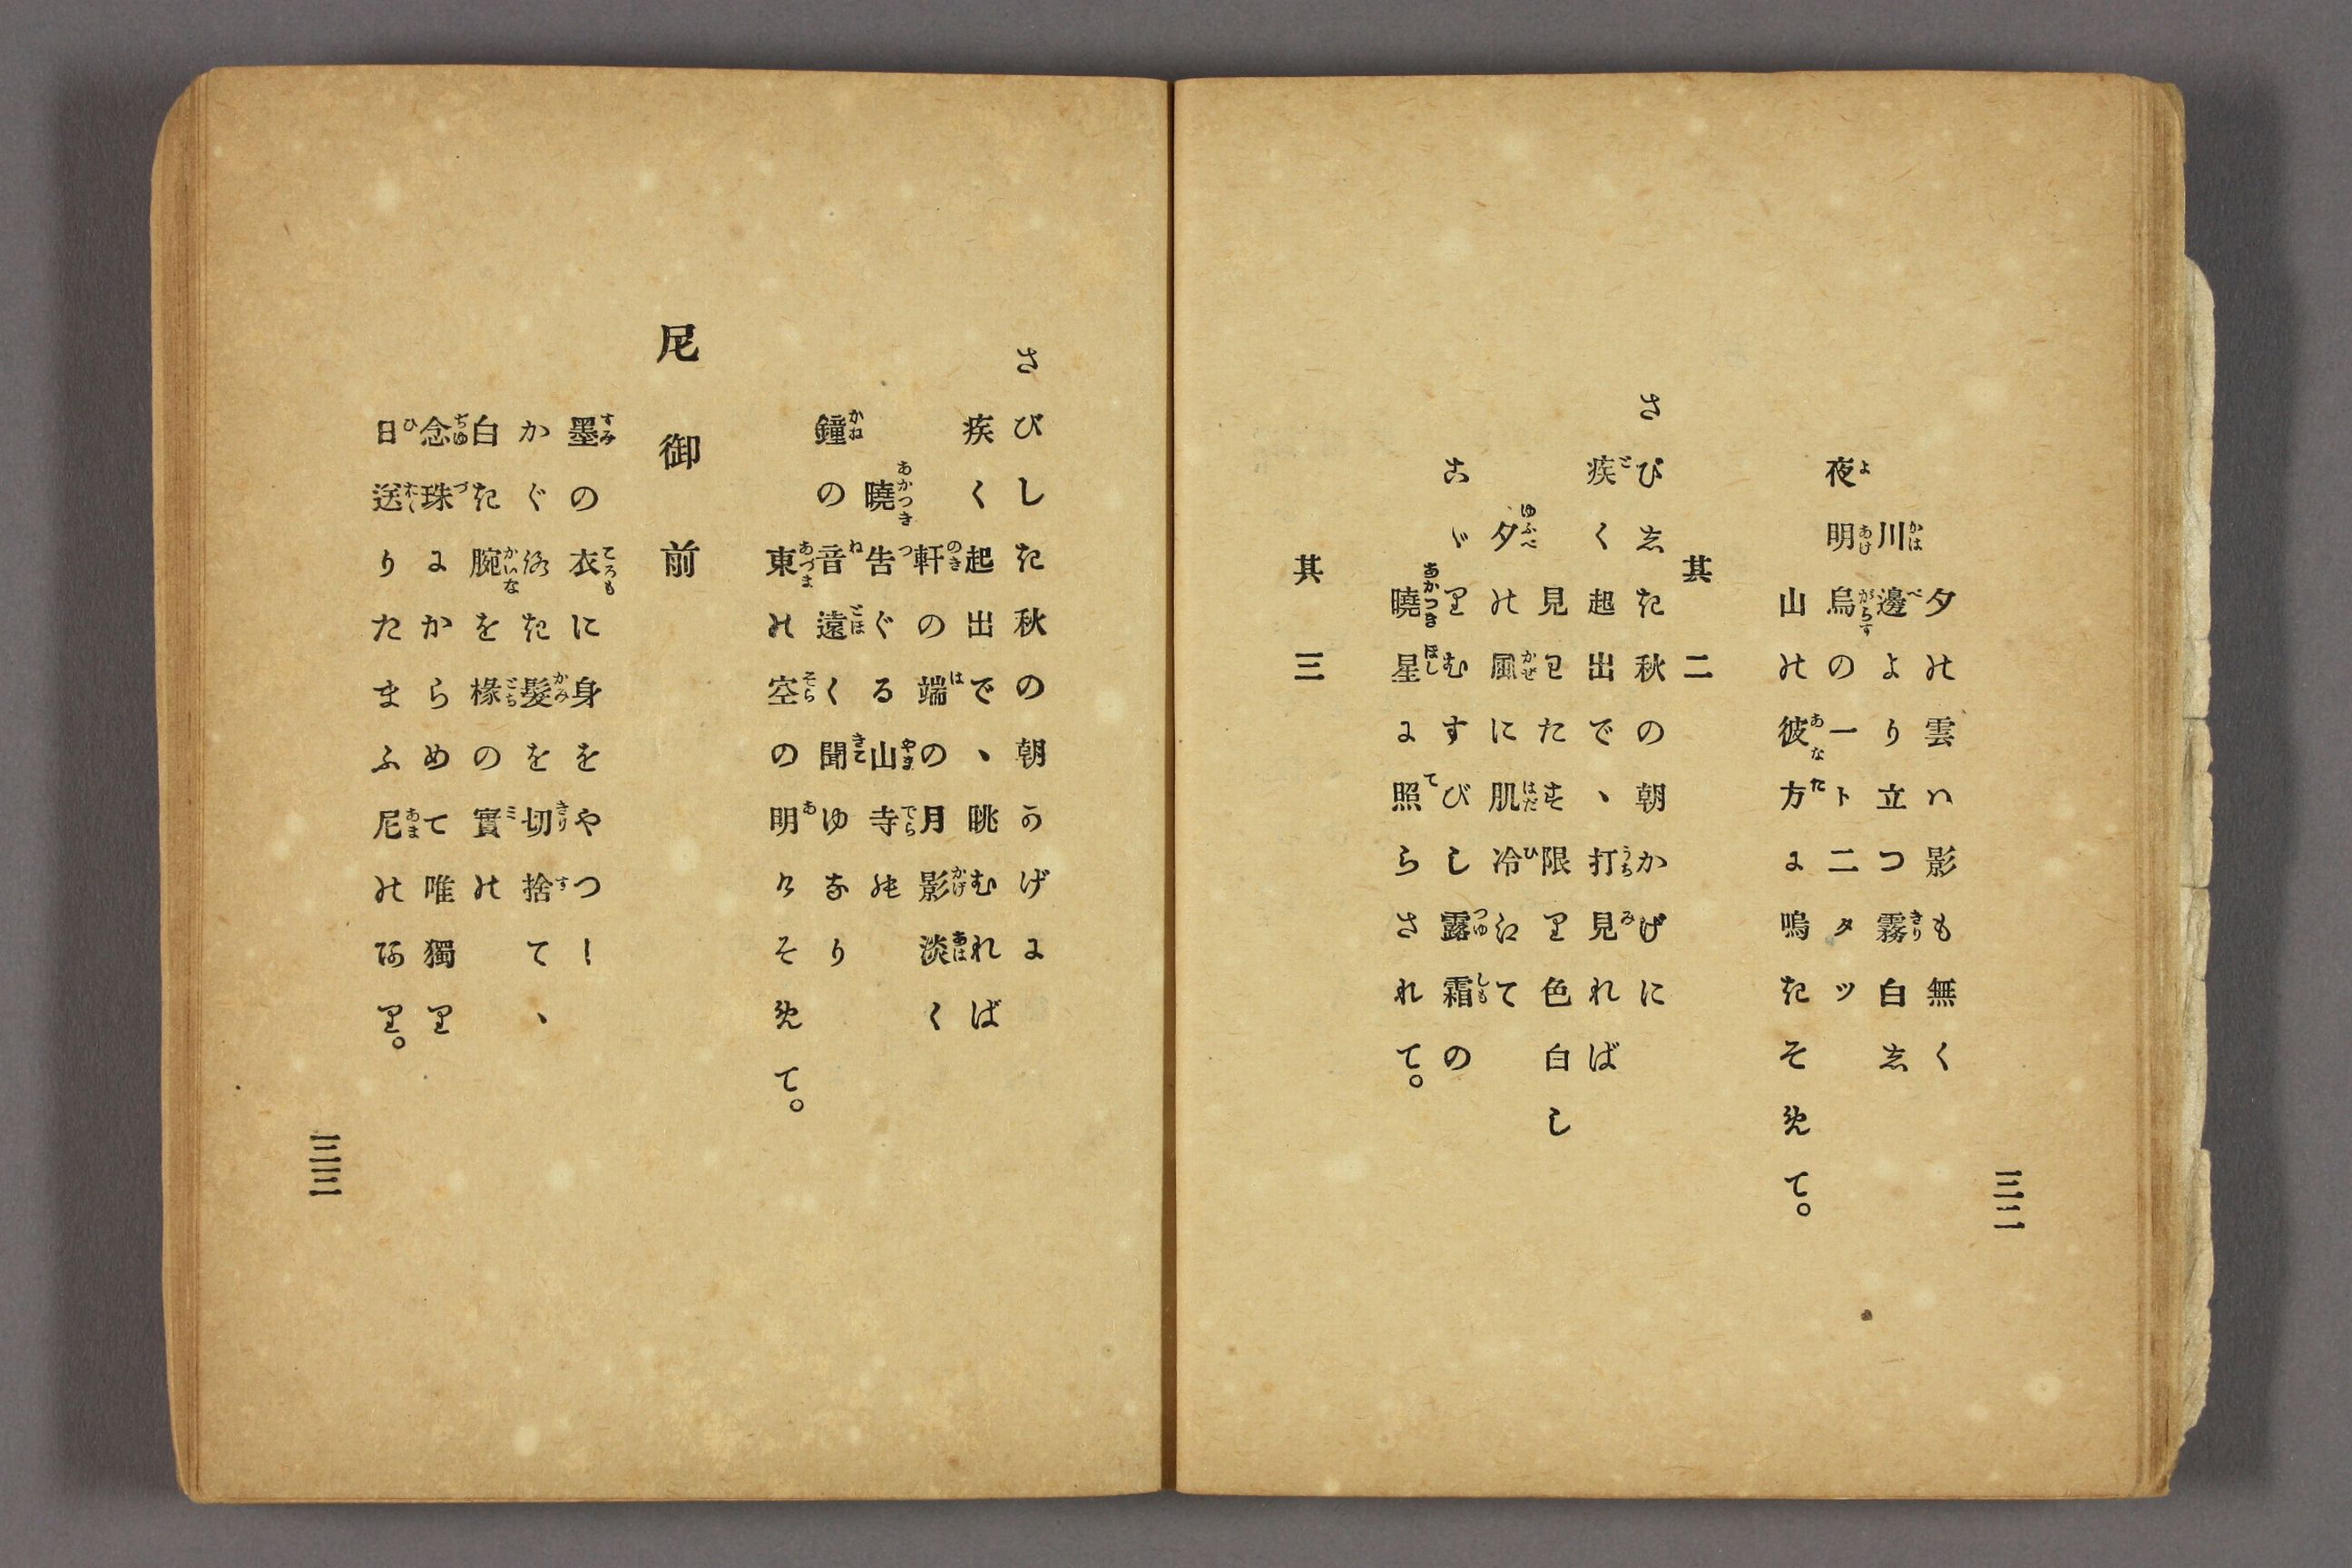 三二
夕の雲ハ影も無く
川邊より立つ霧白し
夜明烏の一ト二タツ
山の彼方に鳴きそめて。
其二
さびしき秋の朝かげに
疾く起出で、打見れば
見わたす限り色白し
夕の風に肌冷えて
こゞりむすびし露霜の
曉星に照らされて。
其三
さびしき秋の朝かげに
疾く起出で、眺むれば
軒の端の月影淡く
曉告ぐる山寺の
鐘の音遠く聞ゆなり
東の空の明けそめて。
尼御前
墨の衣に身をやつし
かぐろき髮を切捨て、
白き腕を椽の實の
念珠にからめて唯獨り
日送りたまふ尼のあり。
三三